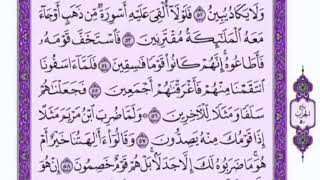 وَلَا يَكَادُ يُبِينُ ۝٥٢ فَلَوْلَآ أُلْقِىَ عَلَيْهِ أَسْوِرَةٌ مِّن ذَهَبٍ أَوْ جَآءَ
مَعَهُ ٱلْمَلَٰٓئِكَةُ مُقْتَرِنِينَ ۝٥٣ فَٱسْتَخَفَّ قَوْمَهُۥ
فَأَطَاعُوهُ إِنَّهُمْ كَانُوا۟ قَوْمًا فَٰسِقِينَ ۝٥٤ فَلَمَّآ ءَاسَفُونَا
ٱنتَقَمْنَا مِنْهُمْ فَأَغْرَقْنَٰهُمْ أَجْمَعِينَ ۝٥٥ فَجَعَلْنَٰهُمْ
سَلَفًا وَمَثَلًا لِّلْءَاخِرِينَ ۝٥٦ وَلَمَّا ضُرِبَ ٱبْنُ مَرْيَمَ مَثَلًا
إِذَا قَوْمُكَ مِنْهُ يَصِدُّونَ ۝٥٧ وَقَالُوٓا۟ ءَأَٰلِهَتُنَا خَيْرٌ أَمْ
هُوَ مَا ضَرَبُوهُ لَكَ إِلَّا جَدَلًۢا بَلْ هُمْ قَوْمٌ خَصِمُونَ ۝٥٨ إِنْ هُوَ